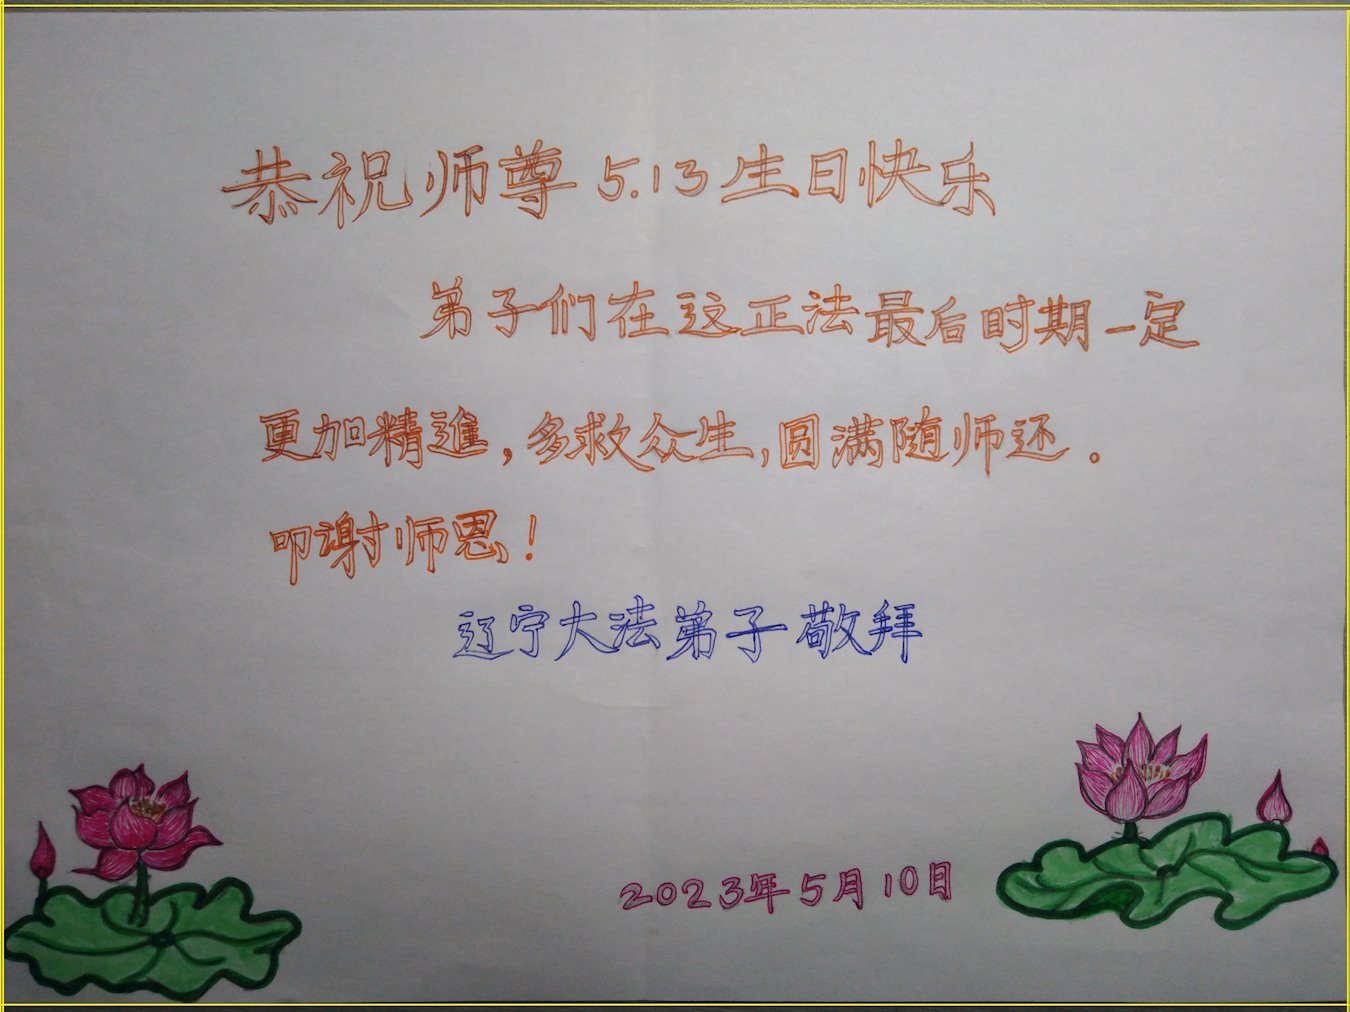 恭祝师尊5.13生日快乐
弟子们在这正法最后时期一定
更加精進,多救众生,圆满随师还.
叩谢师恩!
辽宁大法弟子敬拜
2023年5月10日